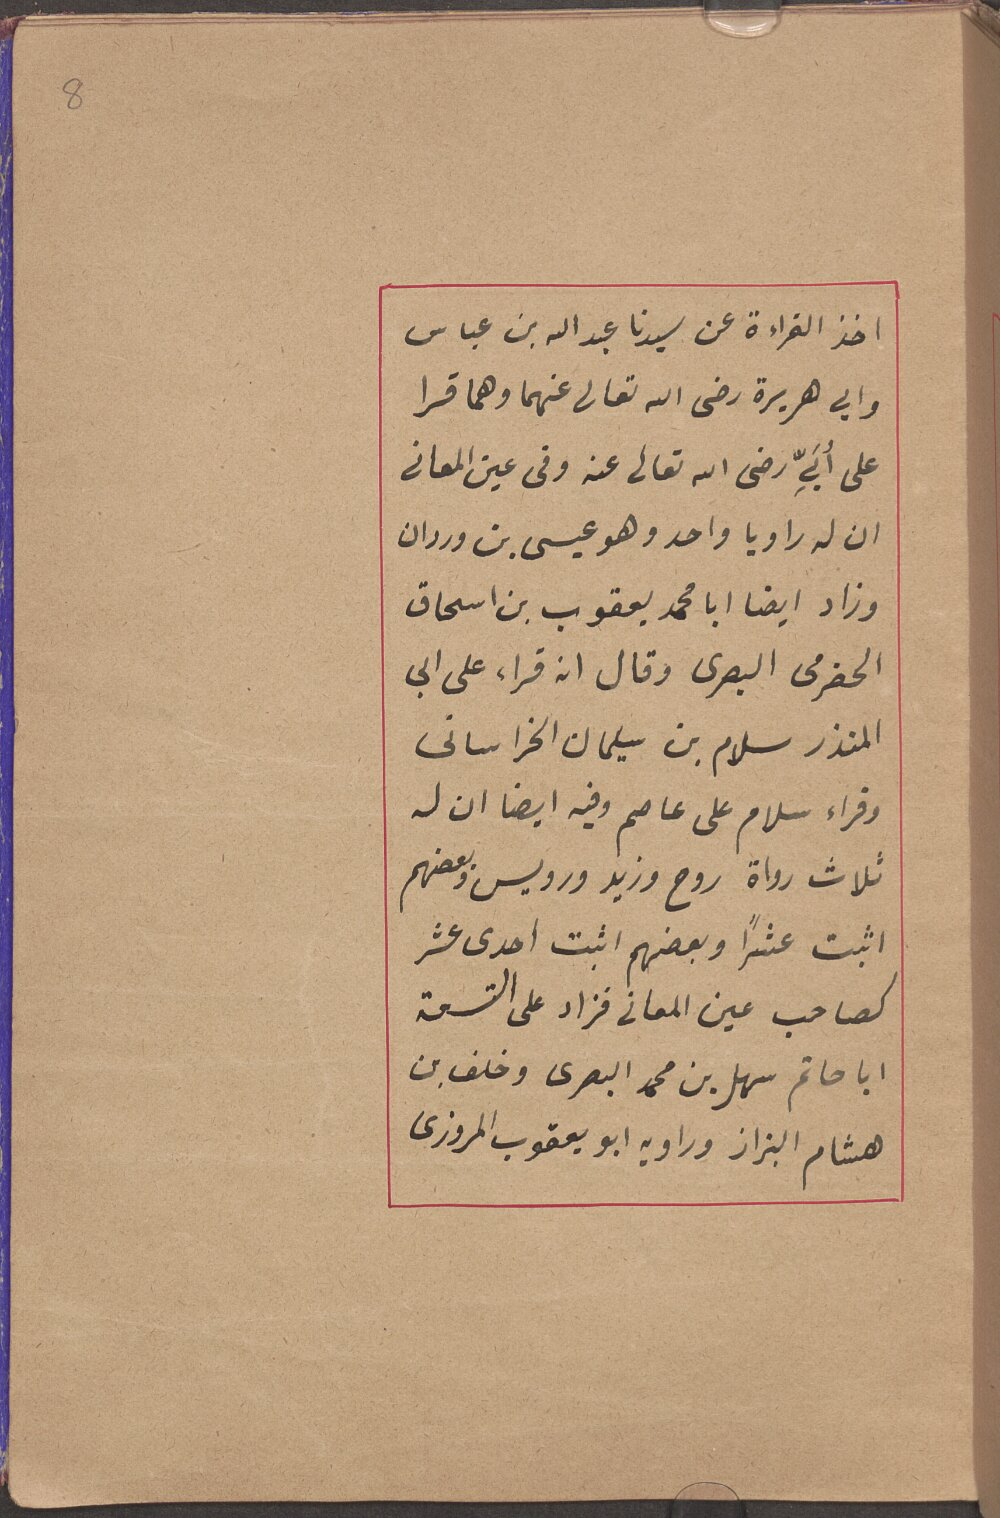 8
اخذ القراءة عن سيدنا عبد الله بن عباس
وابي هريرة رضى الله تعالى عنهما وهما قرا
على أُبَيٍّ رضى الله تعالى عنه وفى عين المعانى
ان له راويا واحد وهو عيسى بن وردان
وزاد ايضا ابا محمد يعقوب بن اسحاق
الحضرمى البصرى وقال انه قراء على ابي
المنذر سلام بن سليمان الخراسانى
وقراء سلام على عاصم وفيه ايضا ان له
ثلاث رواة روح وزيد ورويس وبعضهم
اثبت عشرًا وبعضهم اثبت احدى عشر
كصاحب عين المعانى فزاد على التسعة
ابا حاتم سهل بن محمد البصرى وخلف بن
هشام البزاز وراويه ابو يعقوب المروزى